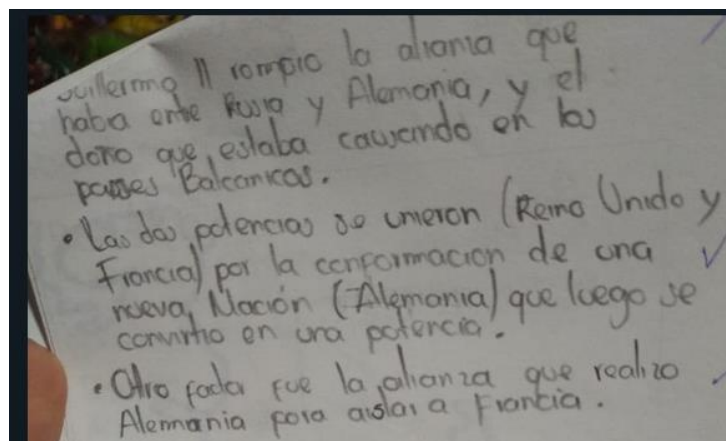 Guillermo II rompio la alianza que
haba entre Rusia y Alemania, y el
daño que estaba causando en los
paises Balcanicos.
• Las dos potencias se unieron (Reino Unido y
Francia) por la conformacion de una
nueva Nación (Alemania) que luego se
convirtio en una potencia.
• Otro fue la alianza que realizo
Alemania para aislar a Francia.